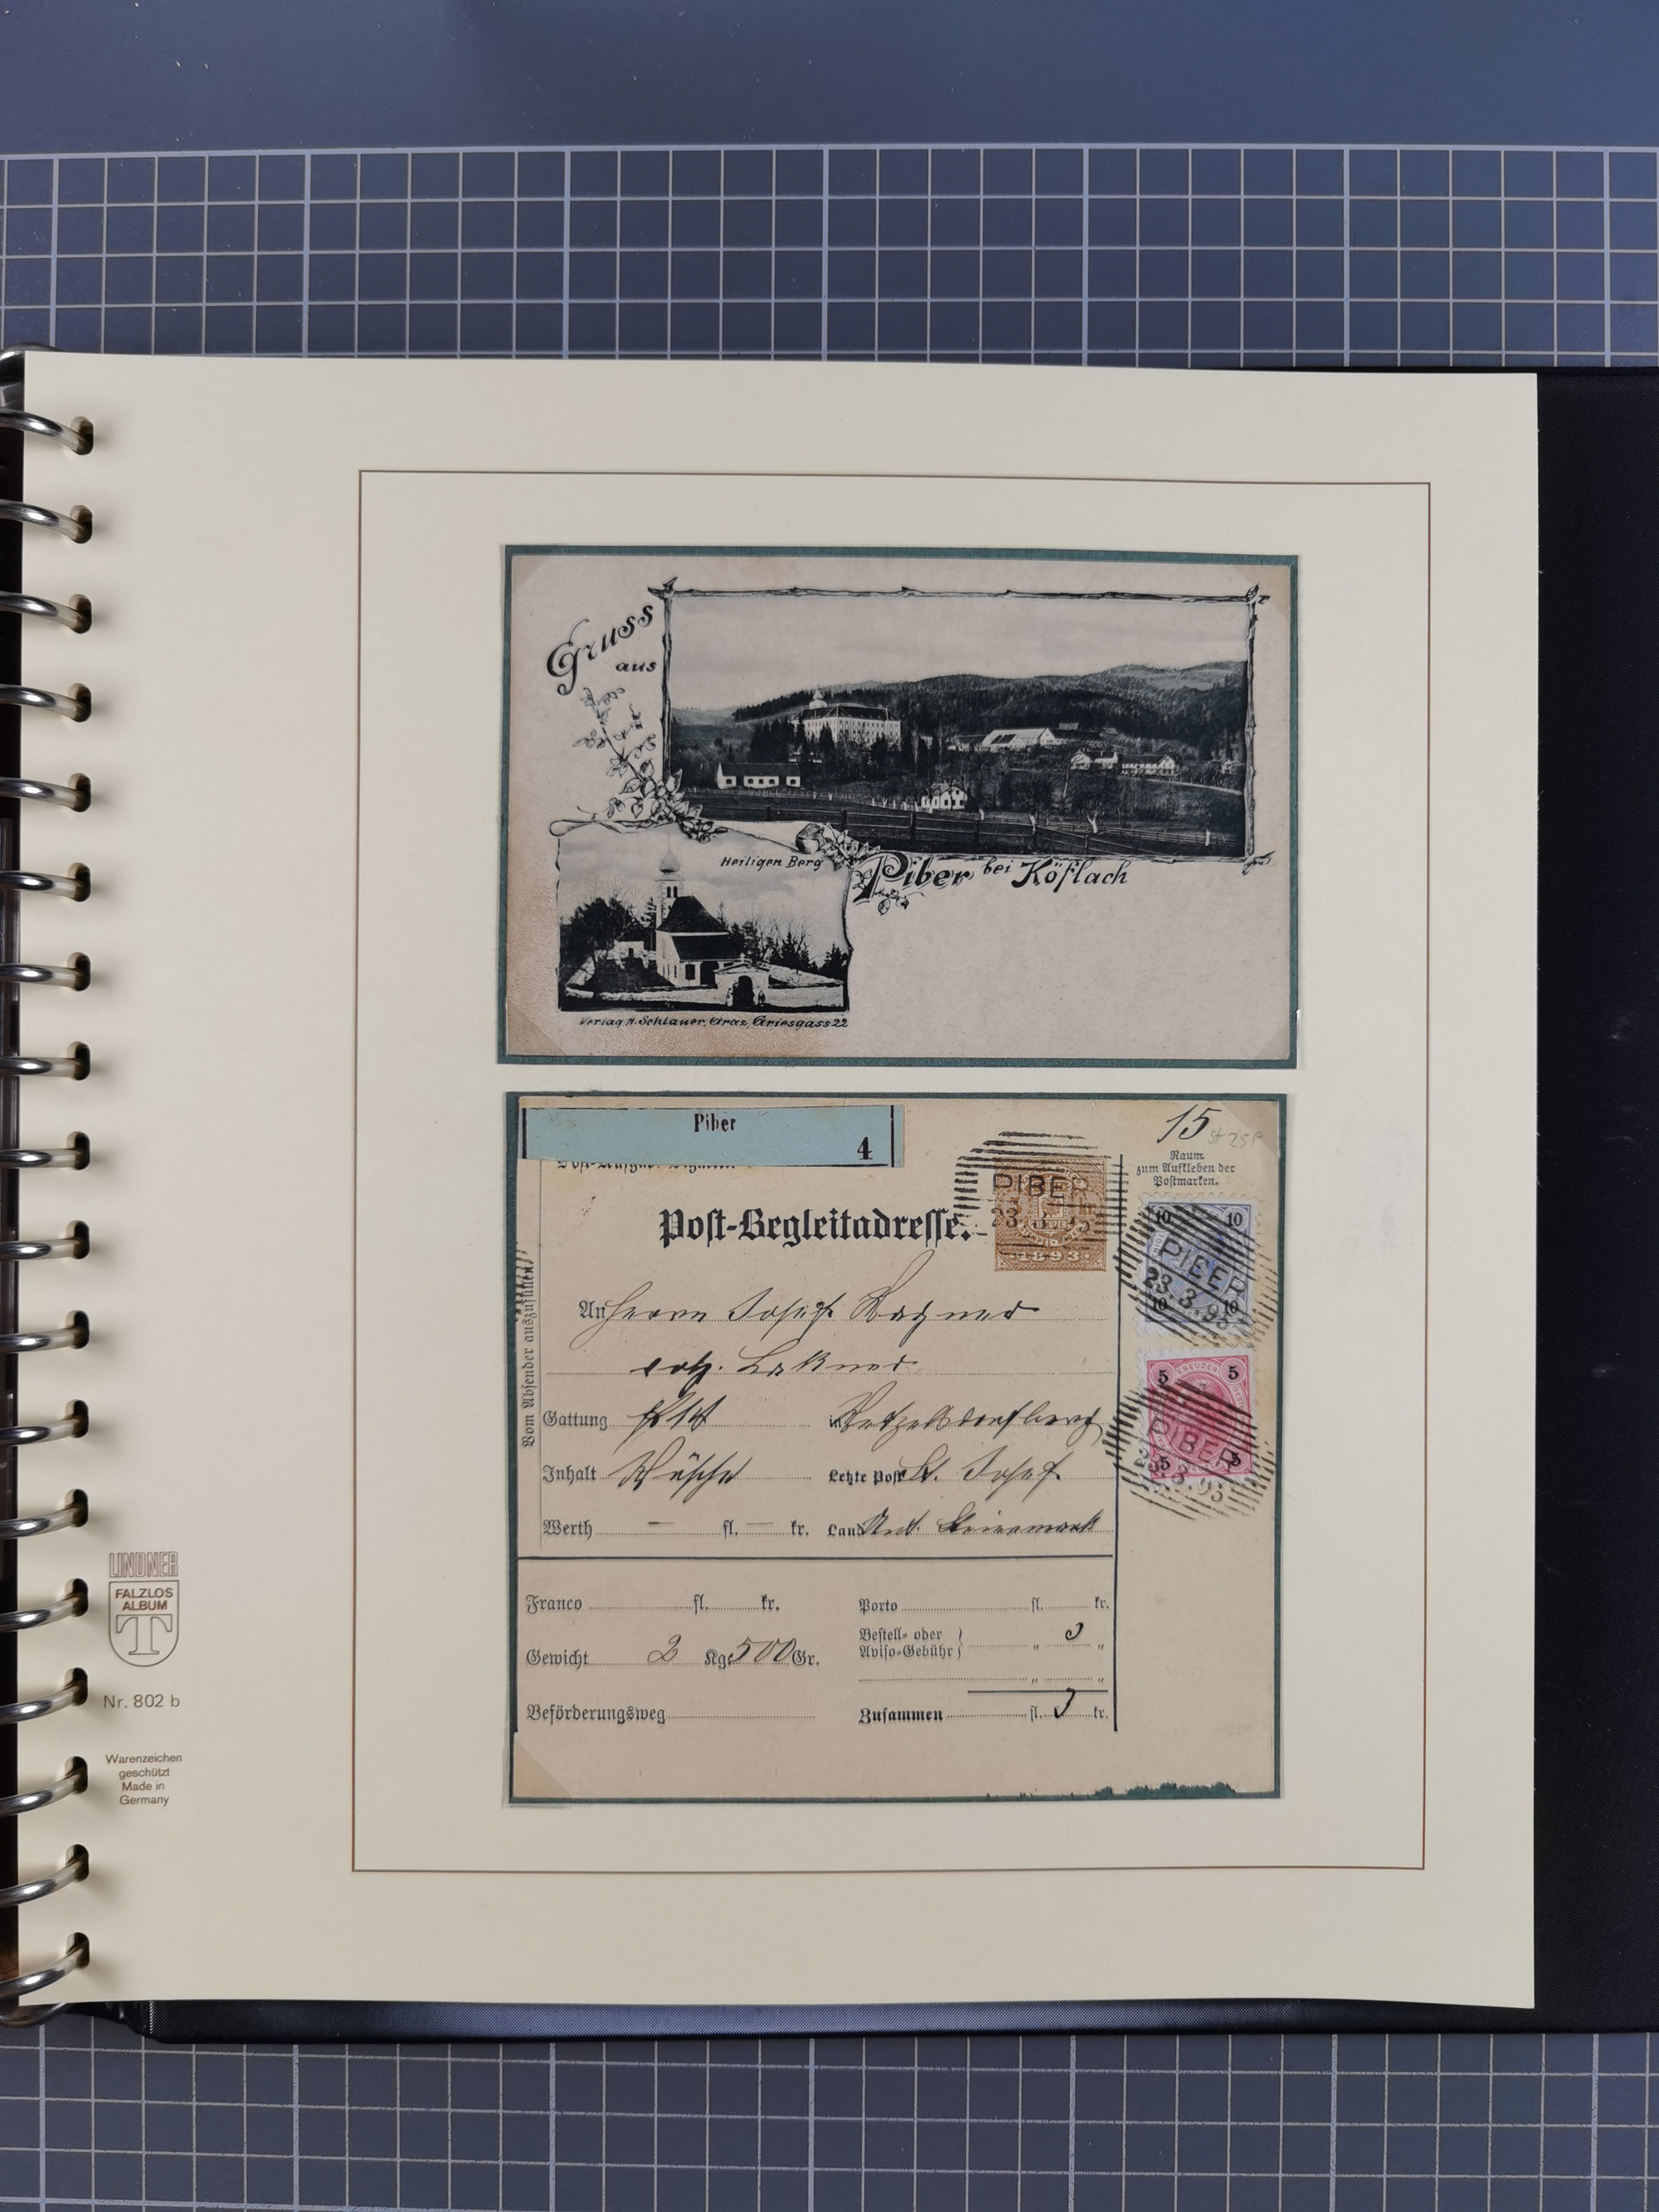 Gruss
aus
Heiligen Berg
Piber bei Köflach
Verlag A. Schlauer, Graz, Griesgass 22
Piber
4
15
Raum
zum Aufkleben der
Postmarken.
PIBER
23
1893
Post-Begleitadresse.
10 10
PIBER
23.3.95
10 10
An Herrn Josef Wagner
Vom Absender auszufüllen
5 5
KREUZER
PIBER
5 5
Gattung in
Inhalt Wäsche Letzte Post St. Josef
Werth — fl. — kr. Land Steiermark
Franco fl. kr. Porto fl. kr.
Bestell- oder
Aviso-Gebühr } 3 "
Gewicht 2 Kg. 500 Gr.
" "
Beförderungsweg Zusammen fl. 3 kr.
LINDNER
FALZLOS
ALBUM
T
Nr. 802 b
Warenzeichen
geschützt
Made in
Germany